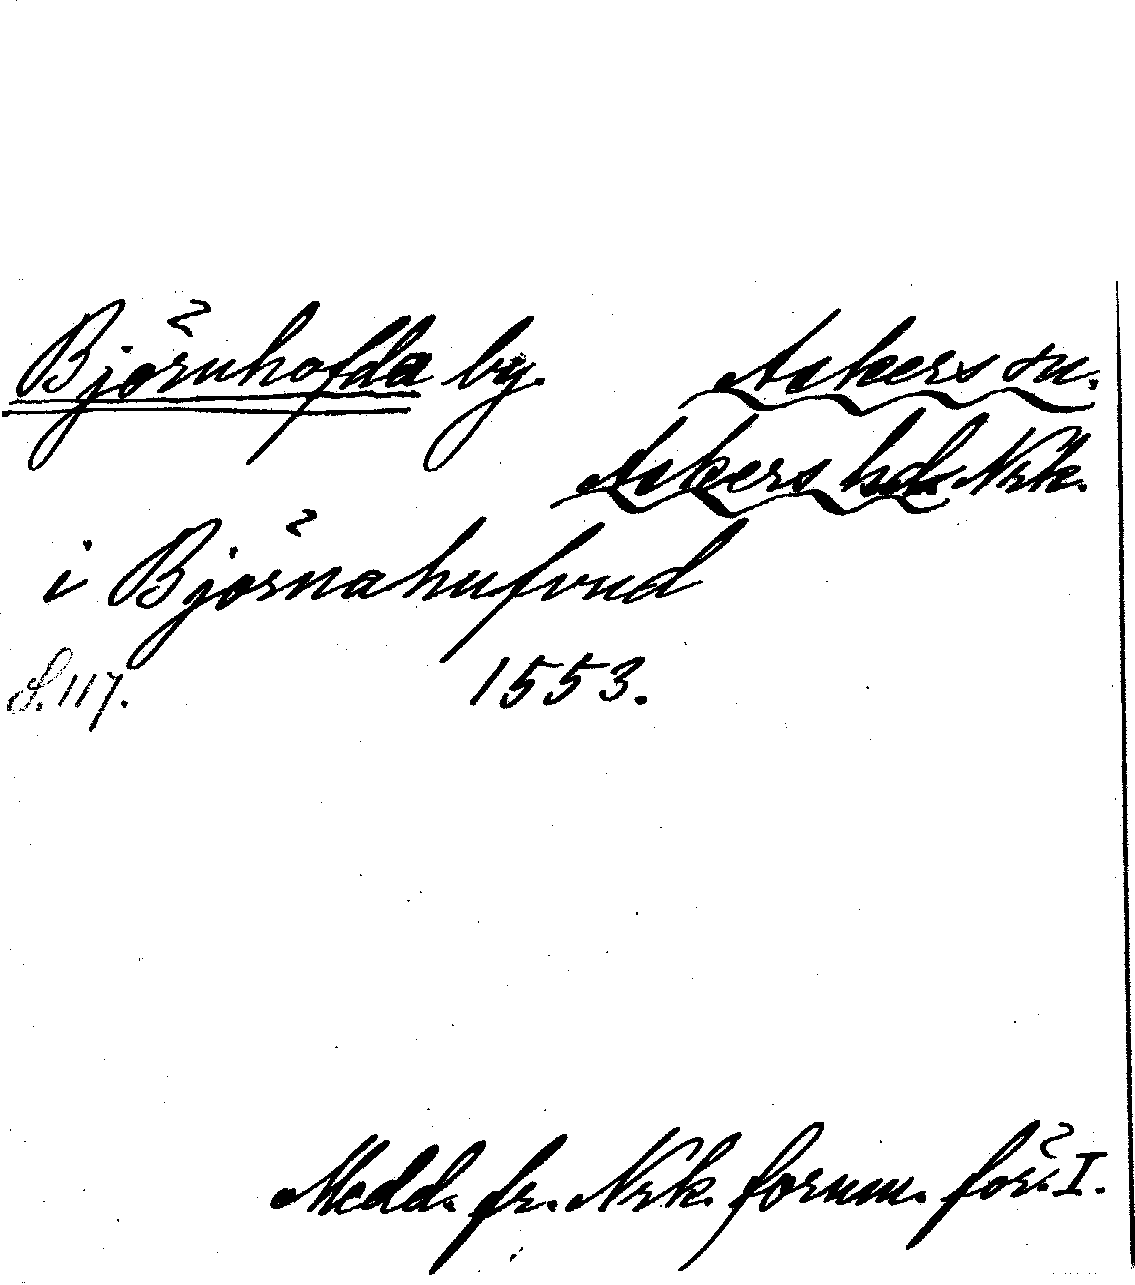 Björnhofda by. Askers sn.
Askers hd. Nrk.
i Björnahufvud
S. 117. 1553.
Medd. fr. Nrk. fornm. för. I.